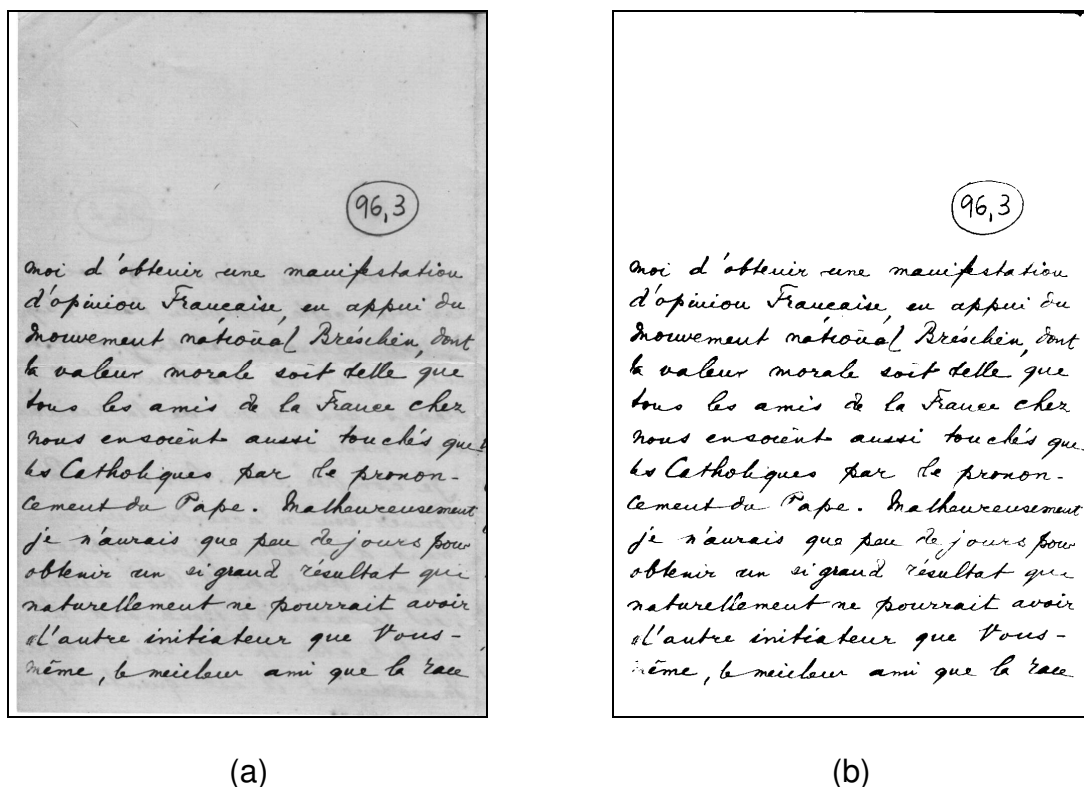 96,3
moi d'obtenir une manifestation
d'opinion Francaise, en appui du
Mouvement national Brésilien, dont
la valeur morale soit telle que
tous les amis de la France chez
nous en soient aussi touchés que
les Catholiques par le pronon-
cement du Pape. Malheureusement
je n'aurais que peu de jours pour
obtenir un si grand résultat qui
naturellement ne pourrait avoir
d'autre initiateur que Vous-
même, le meilleur ami que la race
(a)
96,3
moi d'obtenir une manifestation
d'opinion Francaise, en appui du
Mouvement national Brésilien, dont
la valeur morale soit telle que
tous les amis de la France chez
nous en soient aussi touchés que
les Catholiques par le pronon-
cement du Pape. Malheureusement
je n'aurais que peu de jours pour
obtenir un si grand résultat qui
naturellement ne pourrait avoir
d'autre initiateur que Vous-
même, le meilleur ami que la race
(b)